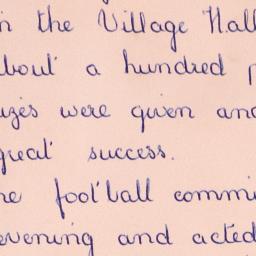 in the Village Hall
about a hundred
prizes were given and
great success.
the football commi
evening and acted